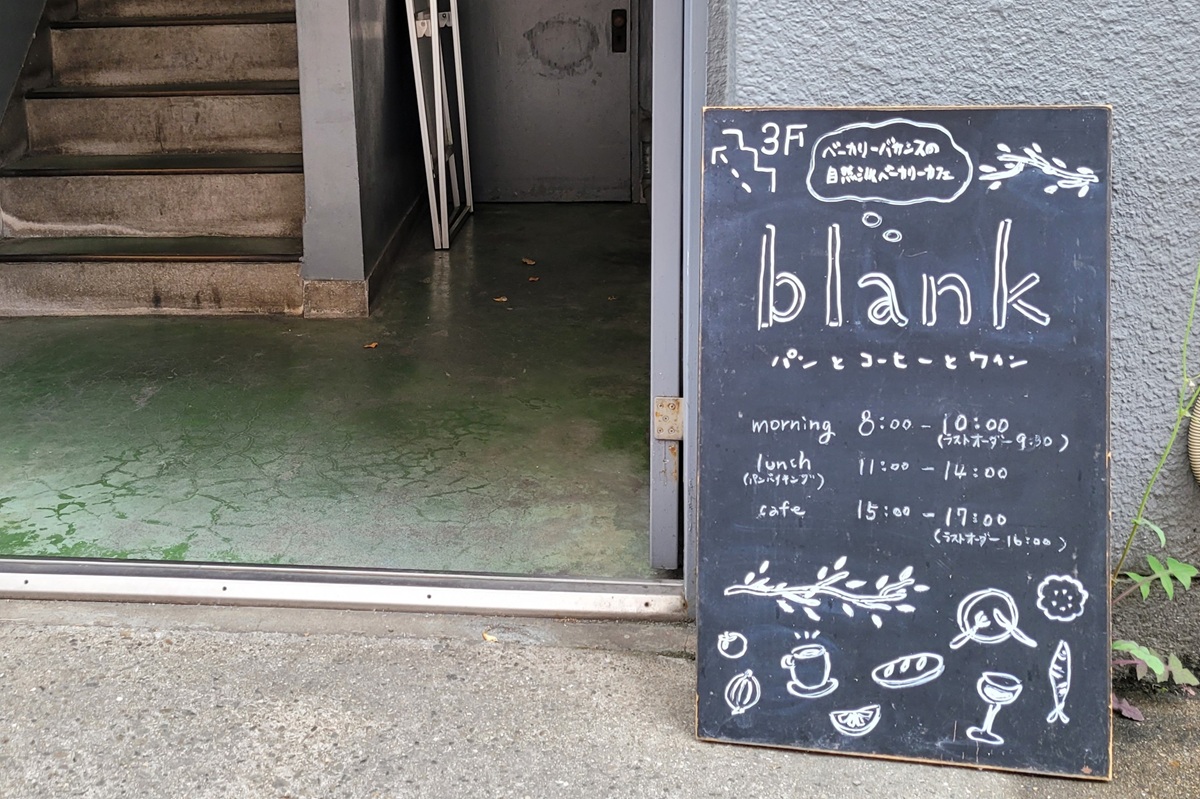 3F
ベーカリーバカンスの
自然派ベーカリーカフェ
blank
パンとコーヒーとワイン
morning 8:00 - 10:00
(ラストオーダー 9:30)
lunch 11:00 - 14:00
(パンバイキング)
cafe 15:00 - 17:00
(ラストオーダー 16:00)